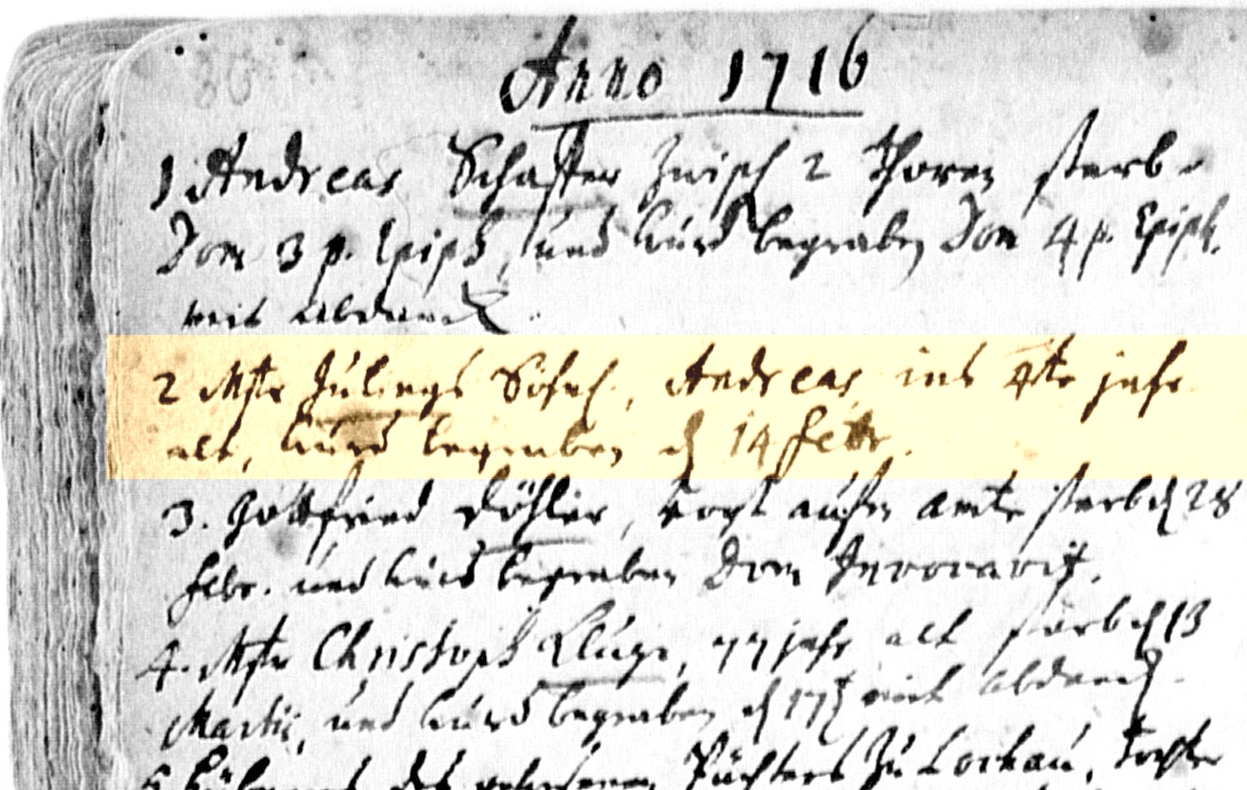 Anno 1716
1 Andreas Schaffer zwisch 2 Thoren starb
Dom 3 p. Epiph, und wurd begraben Dom 4 p. Epiph.
mit Abdanck.
2 Mstr Julings Söhnl., Andreas, ins 4te jahr
alt, wurd begraben d 14 Febr.
3. Gottfried Döhler, Vogt aufm amte starb d 28
Febr. und wurd begraben Dom Invocavit.
4. Mstr Christoph Kluge, 77 jahr alt starb d 13
Martii, und wurd begraben d 17 mit Abdanck.
des Pächters zu Lochau, Tochter